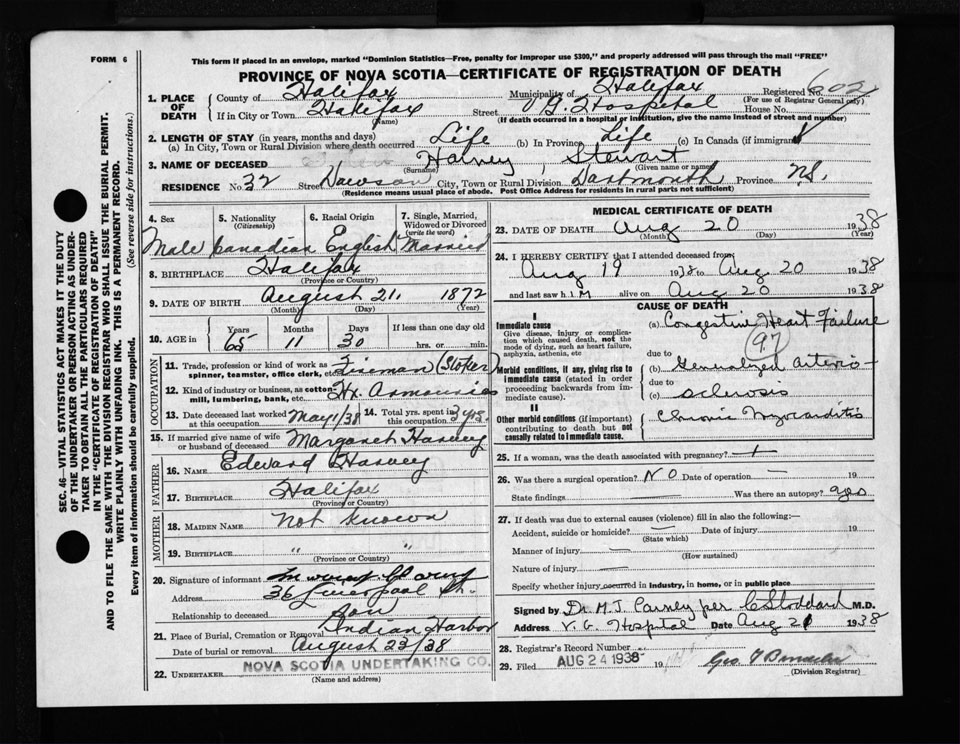 FORM 6
This form if placed in an envelope, marked "Dominion Statistics—Free, penalty for improper use $300," and properly addressed will pass through the mail "FREE"
PROVINCE OF NOVA SCOTIA—CERTIFICATE OF REGISTRATION OF DEATH
1. PLACE OF DEATH
County of Halifax Municipality of Halifax Registered No.
(For use of Registrar General only)
If in City or Town Halifax Street V.G. Hospital House No.
(Name) (If death occurred in a hospital or institution, give the name instead of street and number)
2. LENGTH OF STAY (in years, months and days)
(a) In City, Town or Rural Division where death occurred Life (b) In Province Life (c) In Canada (if immigrant)
3. NAME OF DECEASED Harvey, Stewart
(Surname) (Given name or names)
RESIDENCE No. 32 Street Dawson City, Town or Rural Division Dartmouth Province N.S.
(Residence means usual place of abode. Post Office Address for residents in rural parts not sufficient)
4. Sex Male
5. Nationality (Citizenship) Canadian
6. Racial Origin English
7. Single, Married, Widowed or Divorced (write the word) Married
8. BIRTHPLACE Halifax
(Province or Country)
9. DATE OF BIRTH August 21, 1872
(Month) (Day) (Year)
10. AGE in Years Months Days If less than one day old
65 11 30 hrs. or min.
OCCUPATION
11. Trade, profession or kind of work as spinner, teamster, office clerk, etc. Fireman (Stoker)
12. Kind of industry or business, as cotton-mill, lumbering, bank, etc. Hx. Armouries
13. Date deceased last worked at this occupation May 1/38 14. Total yrs. spent in this occupation 3 yrs.
15. If married give name of wife or husband of deceased Margaret Harvey
FATHER
16. NAME Edward Harvey
17. BIRTHPLACE Halifax
(Province or Country)
MOTHER
18. MAIDEN NAME Not known
19. BIRTHPLACE " "
(Province or Country)
20. Signature of informant
Address 36 Liverpool St.
Relationship to deceased Son
21. Place of Burial, Cremation or Removal Indian Harbor
Date of burial or removal August 23/38
22. UNDERTAKER NOVA SCOTIA UNDERTAKING CO.
(Name and address)
MEDICAL CERTIFICATE OF DEATH
23. DATE OF DEATH Aug 20 1938
(Month) (Day) (Year)
24. I HEREBY CERTIFY that I attended deceased from
Aug 19 1938 to Aug 20 1938
and last saw him alive on Aug 20 1938
CAUSE OF DEATH
I
Immediate cause
Give disease, injury or complication which caused death, not the mode of dying, such as heart failure, asphyxia, asthenia, etc
(a) Congestive Heart Failure
97
due to
Morbid conditions, if any, giving rise to immediate cause (stated in order proceeding backwards from immediate cause).
(b) Generalized Arterio-
due to
(c) sclerosis
II
Other morbid conditions (if important) contributing to death but not causally related to immediate cause.
Chronic Myocarditis
25. If a woman, was the death associated with pregnancy?
26. Was there a surgical operation? No Date of operation — 19
State findings Was there an autopsy? yes
27. If death was due to external causes (violence) fill in also the following:—
Accident, suicide or homicide? — Date of injury 19
(State which)
Manner of injury —
(How sustained)
Nature of injury —
Specify whether injury occurred in industry, in home, or in public place
Signed by Dr. M.J. Carney per C Stoddard M.D.
Address V.G. Hospital Date Aug 21 1938
28. Registrar's Record Number
29. Filed AUG 24 1938 19
(Division Registrar)
SEC. 46—VITAL STATISTICS ACT MAKES IT THE DUTY OF THE UNDERTAKER OR PERSON ACTING AS UNDERTAKER TO OBTAIN ALL THE PARTICULARS REQUIRED IN THE "CERTIFICATE OF REGISTRATION OF DEATH" AND TO FILE THE SAME WITH THE DIVISION REGISTRAR WHO SHALL ISSUE THE BURIAL PERMIT.
WRITE PLAINLY WITH UNFADING INK. THIS IS A PERMANENT RECORD.
Every item of information should be carefully supplied. (See reverse side for instructions.)